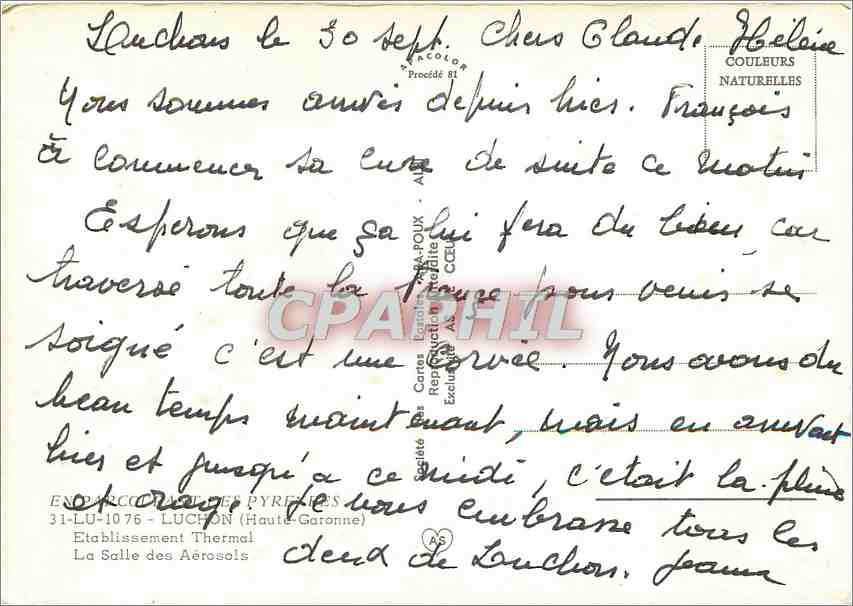 Luchons le 30 sept. Chers Claude Hélène
APACOLOR
Procédé 81
COULEURS
NATURELLES
Nous sommes arrivés depuis hier. François
à commencer sa cure de suite ce matin
Esperons que ça lui fera du bien car
traversé toute la France pour venir se
soigné c'est une corvée. Nous avons du
beau temps maintenant, mais en arrivant
hier et jusqu'a ce midi, c'était la pluie
et orage. Je vous embrasse tous les
deux de Luchon. Jeanne
Société des Cartes Postales APA-POUX -
Reproduction Interdite
Exclusivité AS DE CŒUR
CPAPHIL
EN PARCOURANT LES PYRENEES
31-LU-1076 - LUCHON (Haute-Garonne)
Etablissement Thermal
La Salle des Aérosols
AS